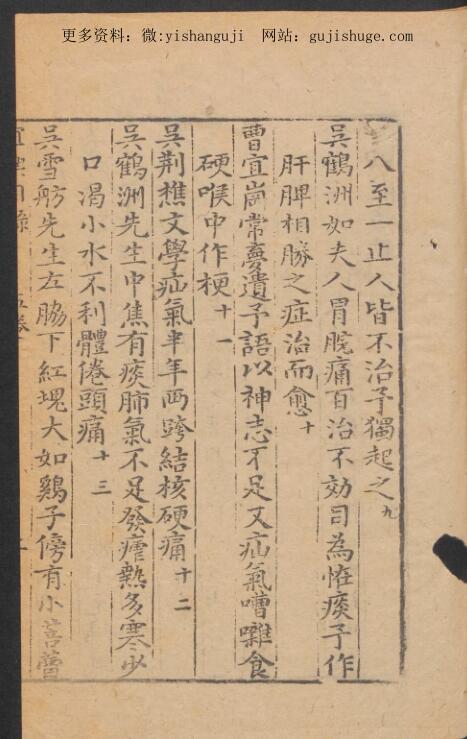 更多资料：微:yishanguji 网站：gujishuge.com
八至一止人皆不治予獨起之九
吳鶴洲如夫人胃脘痛百治不効目為怪痰予作
肝脾相勝之症治而愈十
曹宜崗常夢遺予語以神志不足又疝氣嘈囃食
硬喉中作梗十一
吳荊樵文學疝氣半年两跨結核硬痛十二
吳鶴洲先生中焦有痰肺氣不足發瘧熱多寒少
口渴小水不利體倦頭痛十三
吳雪舫先生左脇下紅塊大如鷄子傍有小蓓蕾